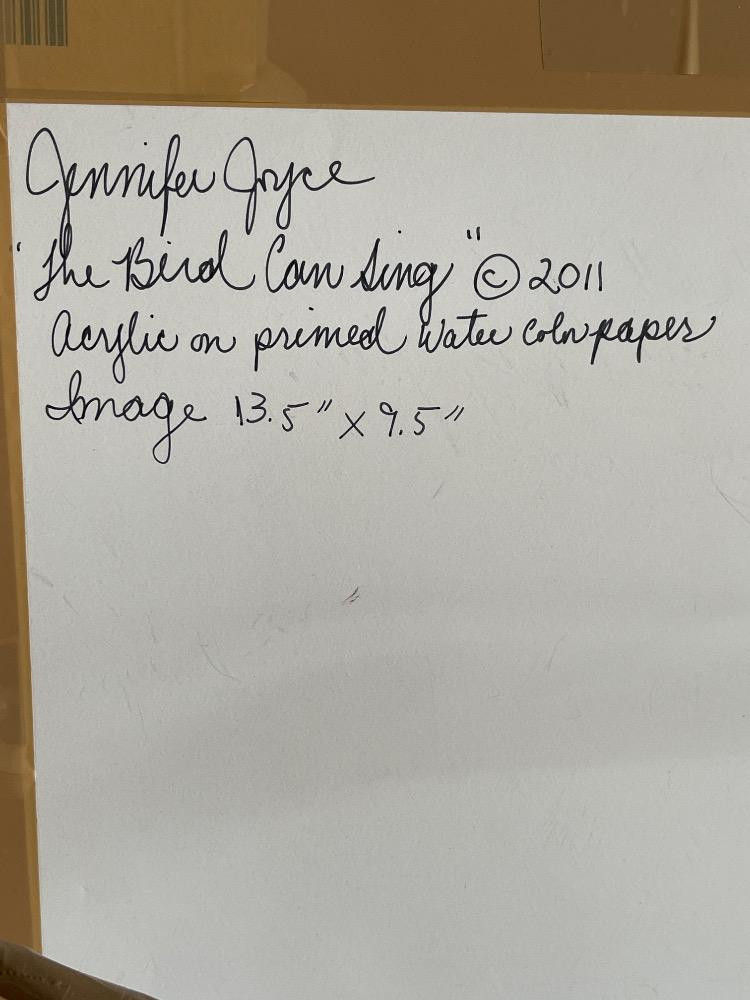 Jennifer Joyce
"The Bird Can Sing" © 2011
Acrylic on primed water color paper
Image 13.5" x 9.5"